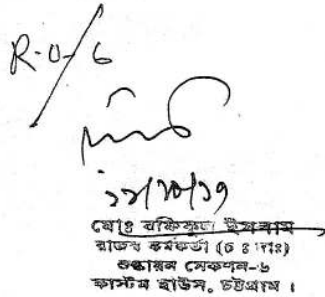 R-O-6
মোঃ রফিকুল ইসলাম
রাজস্ব কর্মকর্তা (চঃ দাঃ)
শুল্কায়ন সেকশন-৬
কাস্টম হাউস, চট্টগ্রাম।